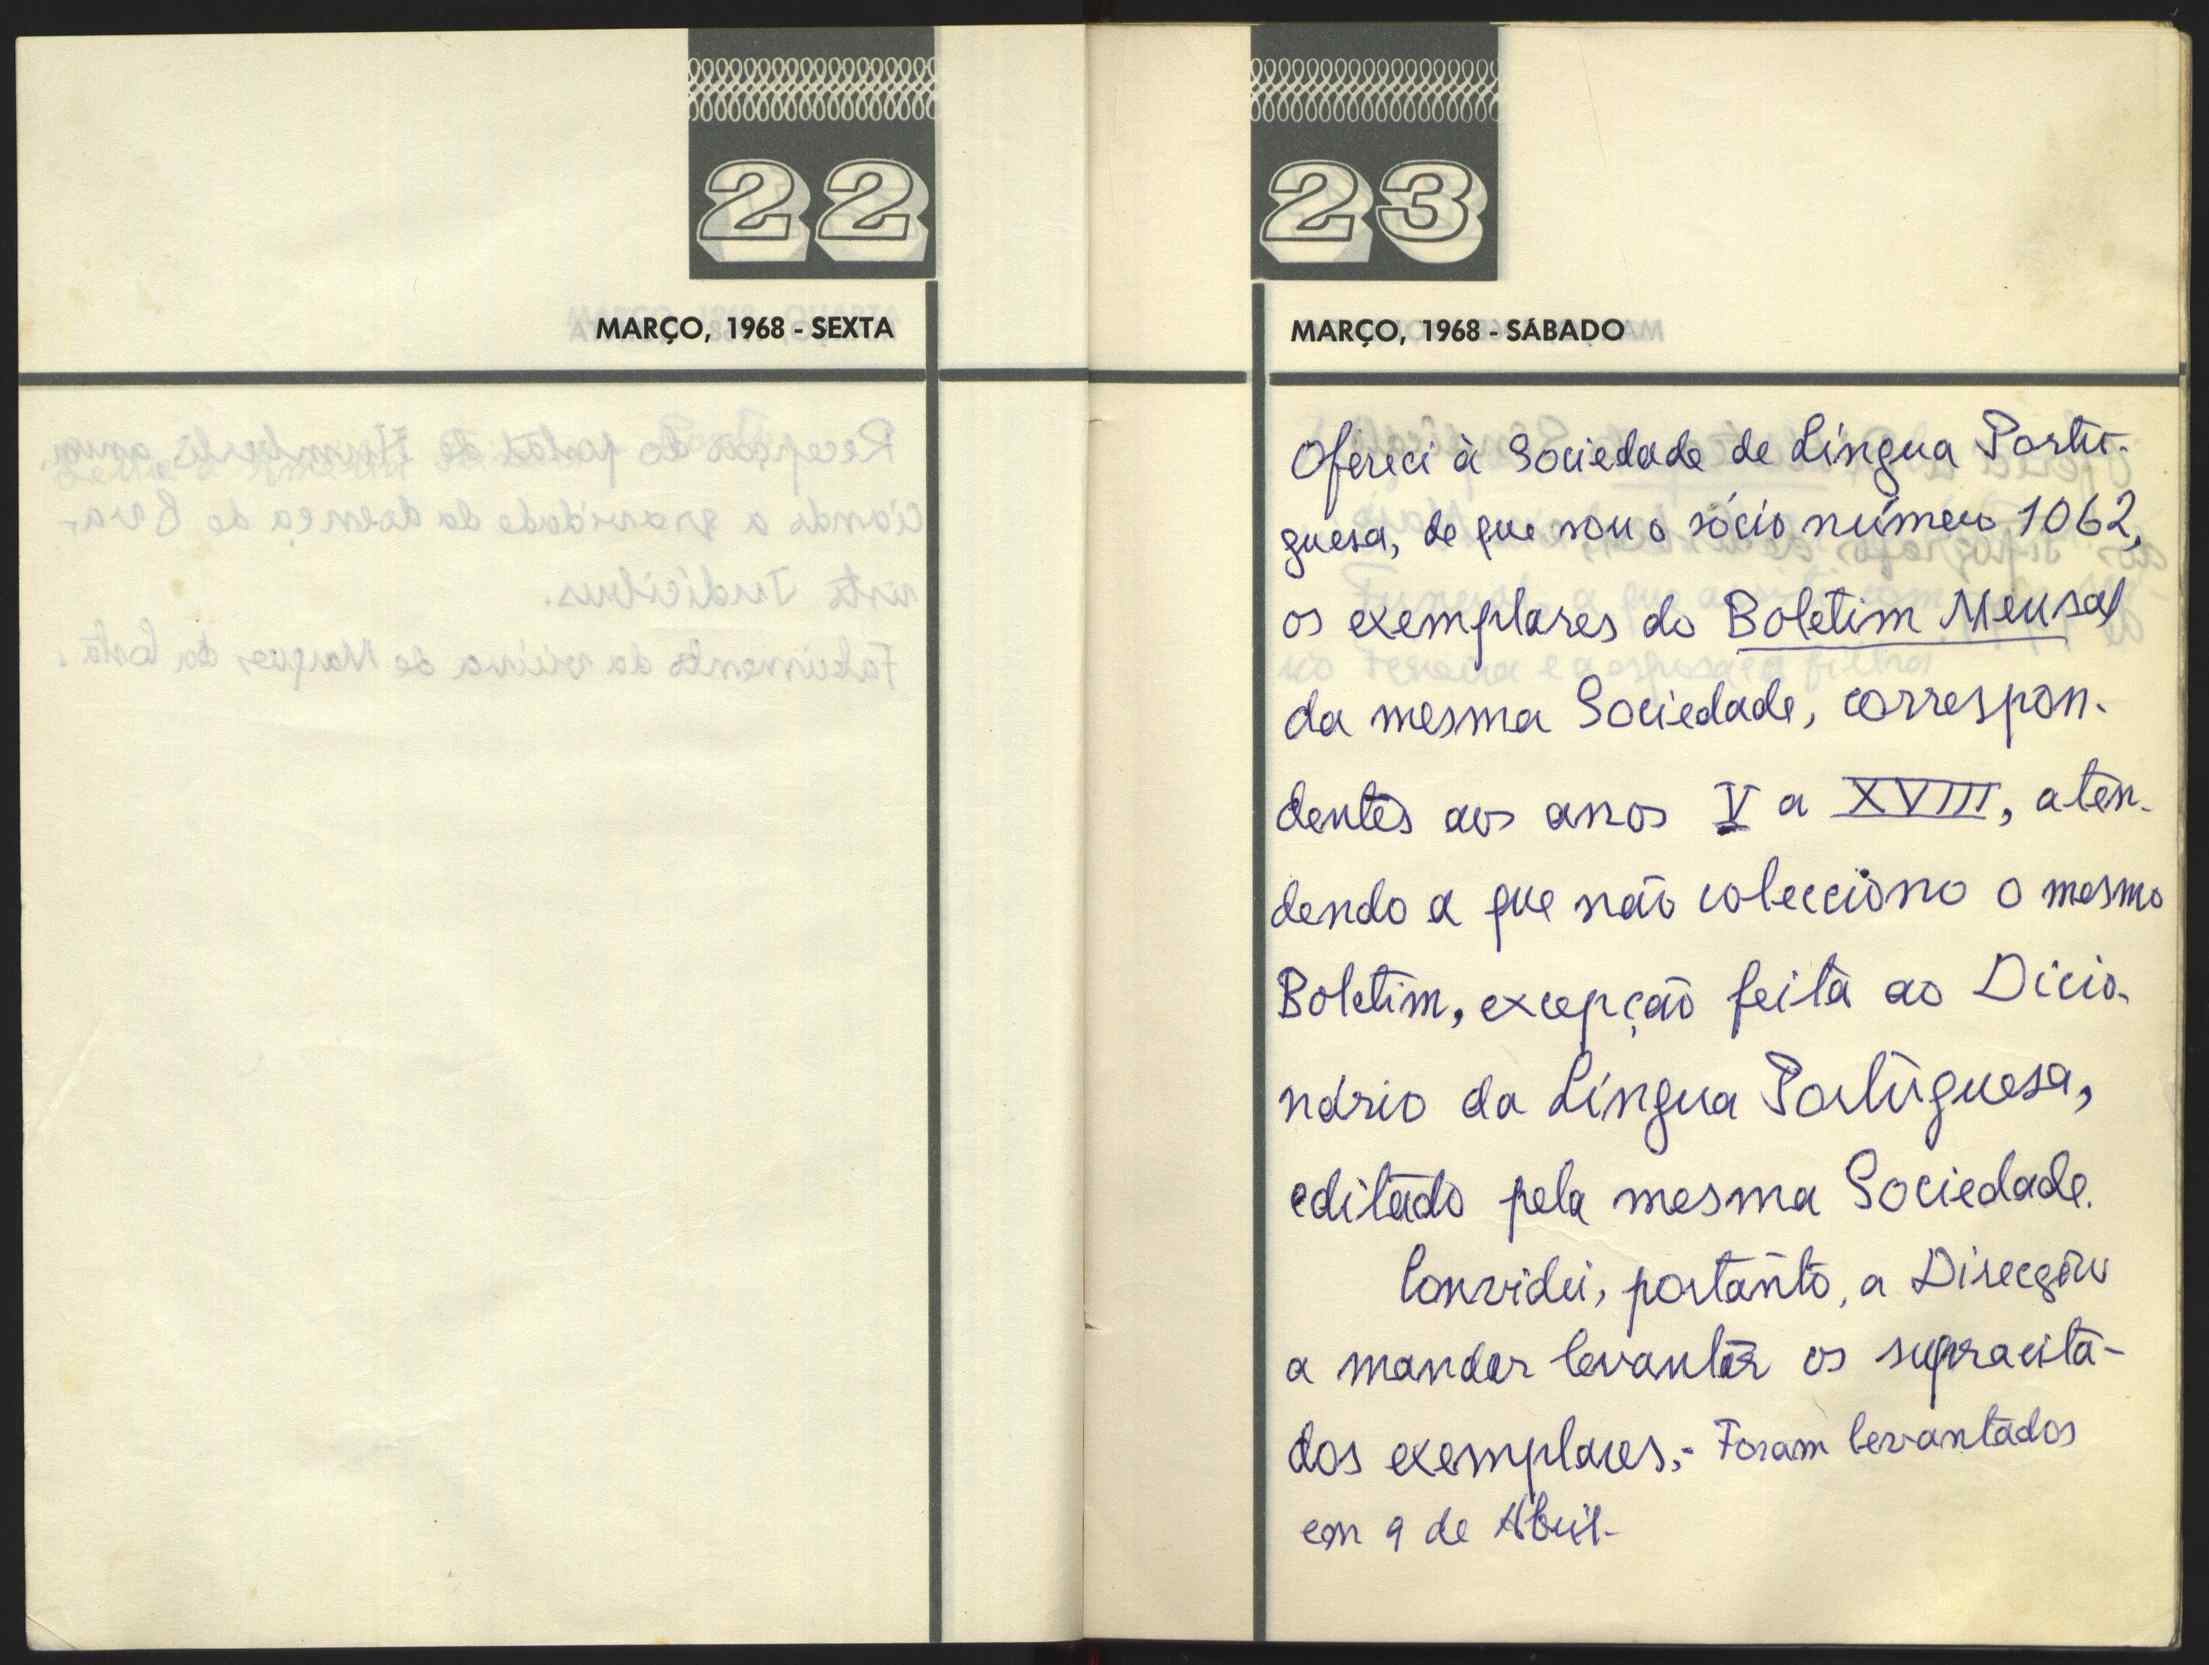 22
MARÇO, 1968 - SEXTA
23
MARÇO, 1968 - SÁBADO
Ofereci à Sociedade de Língua Portu-
guesa, de que sou o sócio número 1062,
os exemplares do Boletim Mensal
da mesma Sociedade, correspon-
dentes aos anos V a XVIII, aten-
dendo a que não colecciono o mesmo
Boletim, excepção feita ao Dicio-
nário da Língua Portuguesa,
editado pela mesma Sociedade.
Convidei, portanto, a Direcção
a mandar levantar os supracita-
dos exemplares.- Foram levantados
em 9 de Abril-